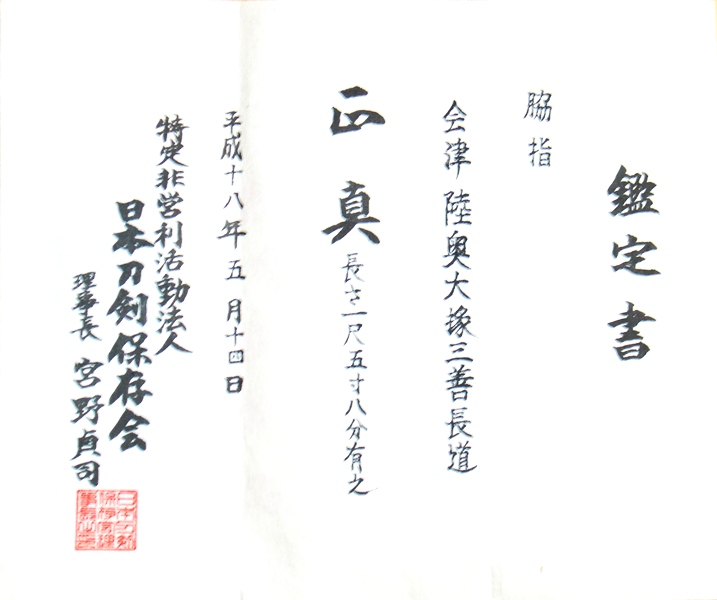 鑑定書
脇指
会津陸奥大掾三善長道
正真
長さ一尺五寸八分有之
平成十八年五月十四日
特定非営利活動法人
日本刀剣保存会
理事長 宮野貞司